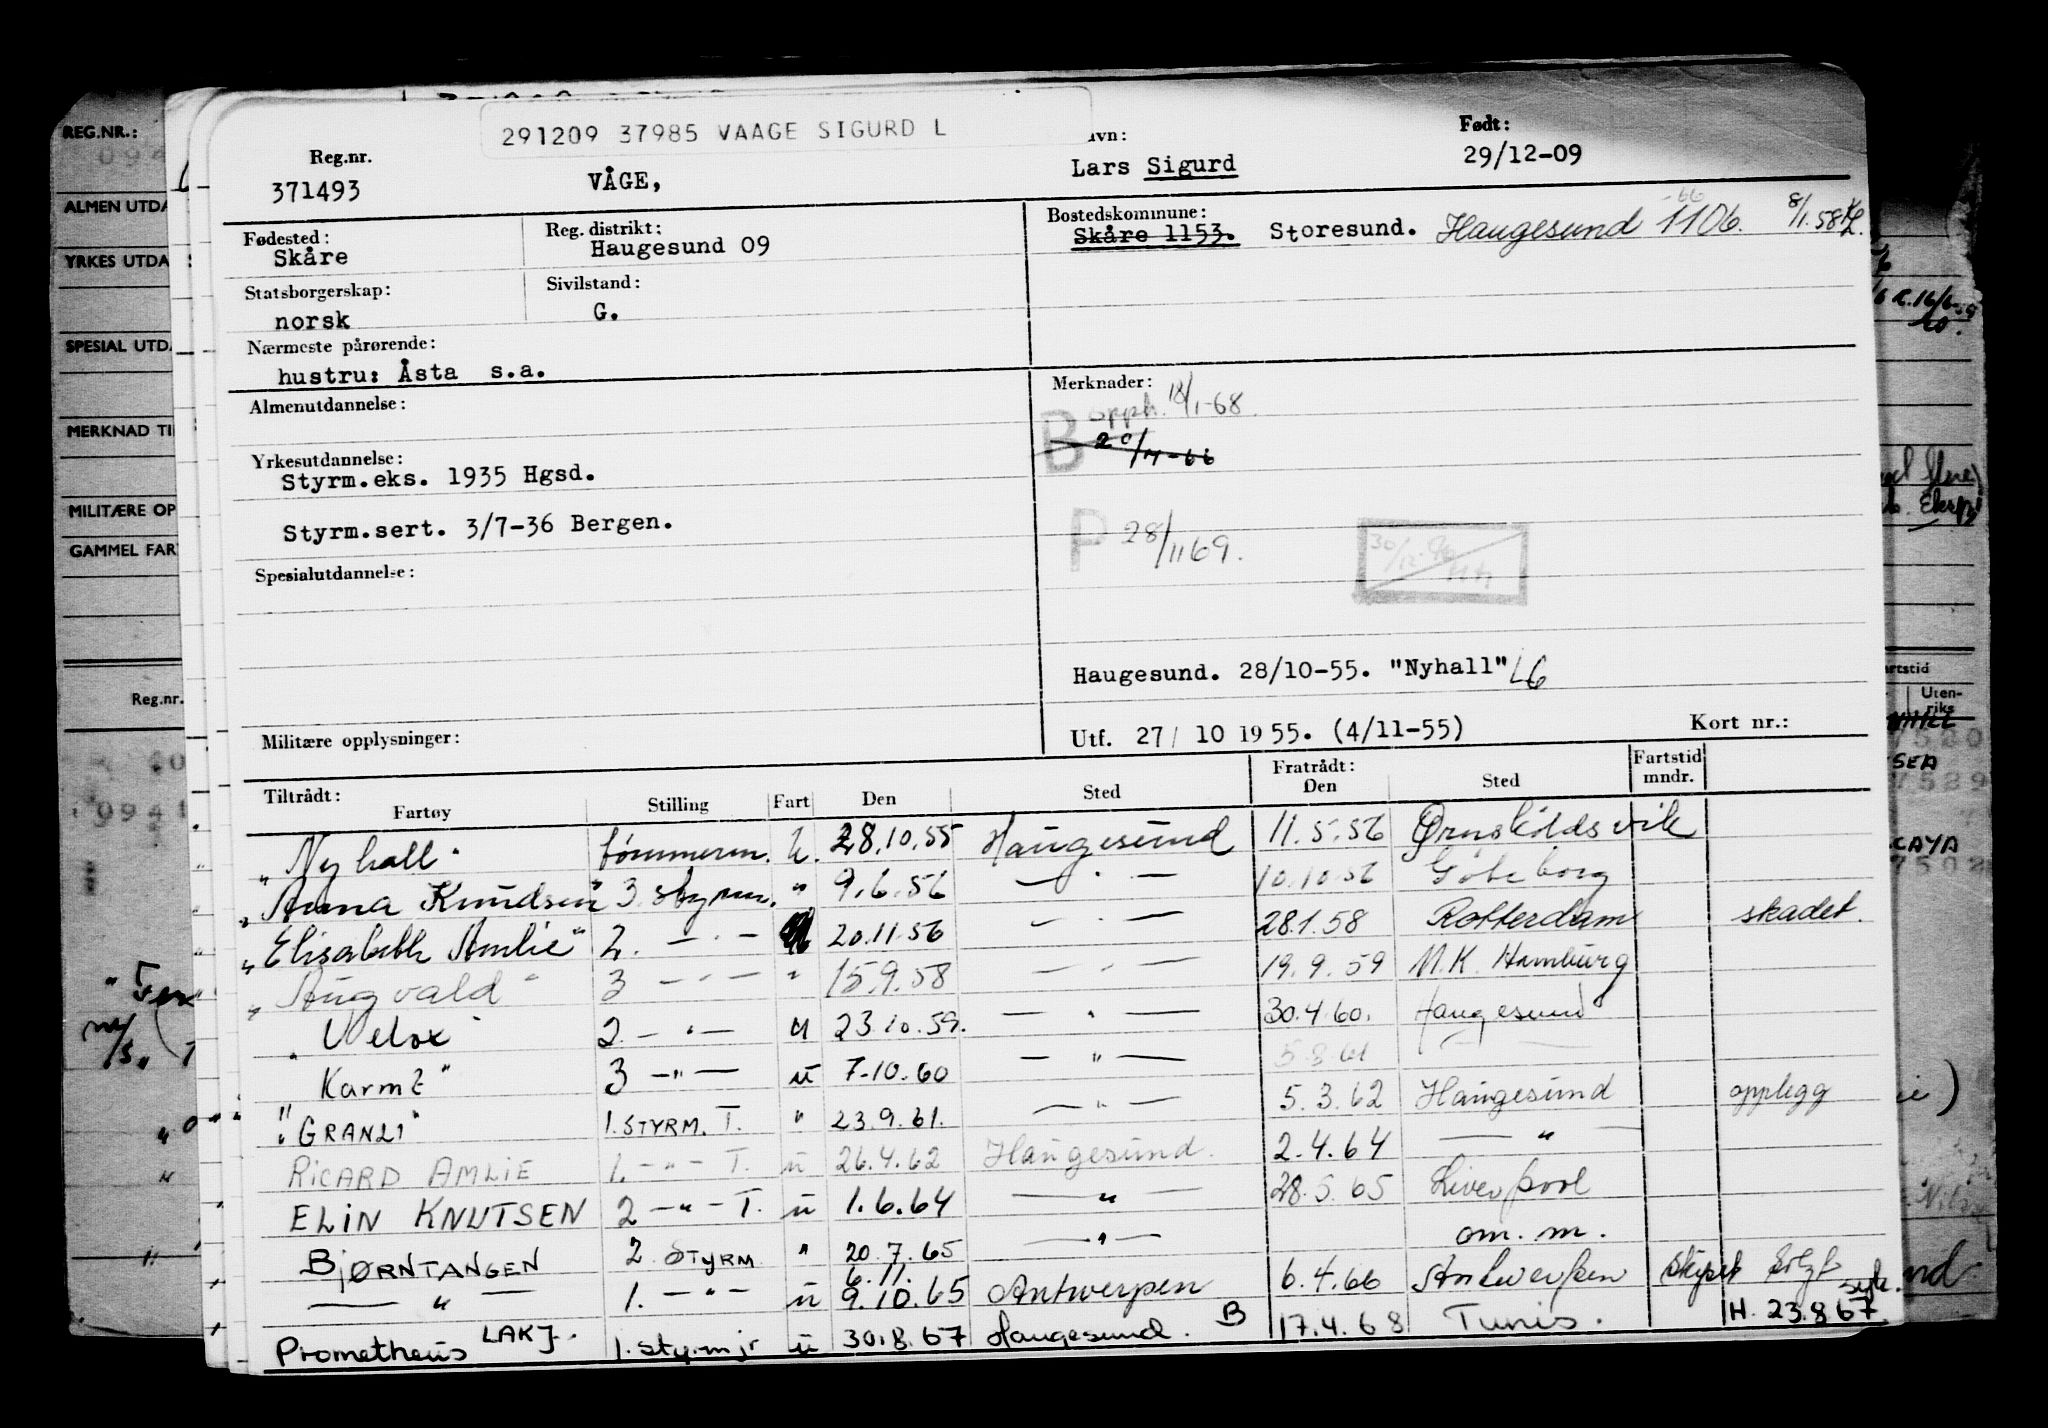 291209 37985 VAAGE SIGURD L
Reg.nr. 371493
VÅGE,
Lars Sigurd
Født: 29/12-09
Fødested: Skåre
Reg. distrikt: Haugesund 09
Bostedskommune: Skåre 1153. Storesund. Haugesund 1106. 8/1.58
Statsborgerskap: norsk
Sivilstand: G.
Nærmeste pårørende:
hustru: Åsta s.a.
Almenutdannelse:
Merknader:
B opph. 18/1-68.
Yrkesutdannelse:
Styrm.eks. 1935 Hgsd.
Styrm.sert. 3/7-36 Bergen.
P 28/11 69.
Spesialutdannelse:
Haugesund. 28/10-55. "Nyhall" L6
Militære opplysninger:
Utf. 27/ 10 1955. (4/11-55)
Kort nr.:
Tiltrådt: Fartøy Stilling Fart Den Sted Fratrådt: Den Sted Fartstid mndr.
"Nyhall" tømmerm. U. 28.10.55 Haugesund 11.5.56 Ørnskoldsvik
"Anna Knudsen" 3 styrm. " 9.6.56 — " — 10.10.56 Göteborg
"Elisabeth Amlie" 2. — " — 20.11.56 — " — 28.1.58 Rotterdam skadet.
"Augvald" 3 — " — " 15.9.58 — " — 19.9.59 N.K. Hamburg
"Velox" 2. — " — u 23.10.59. — " — 30.4.60. Haugesund
Karmt" 3 — " — u 7.10.60 — " — 5.8.61 — —
"GRANLI" 1. STYRM. T. " 23.9.61. — " — 5.3.62 Haugesund opplegg
RICARD AMLIE 1. — " — T. u 26.4.62 Haugesund. 2.4.64 — " —
ELIN KNUTSEN 2 — " — T. u 1.6.64 — " — 28.5.65 Liverpool
BJØRNTANGEN 2. STYRM " 20.7.65 — " — om. m.
— " — 1. — " — u 9.10.65 6.11. Antwerpen 6.4.66 Antwerpen Skipet solgt
Prometheus LAKJ. 1. styrm jr u 30.8.67 Haugesund. B 17.4.68 Tunis. H. 23.8 67 syk.
REG.NR.:
ALMEN UTDA
YRKES UTDA
SPESIAL UTDA
MERKNAD TI
MILITÆRE OP
GAMMEL FAR
Reg.nr.
artstid
Uten-
riks
SEA
CAYA